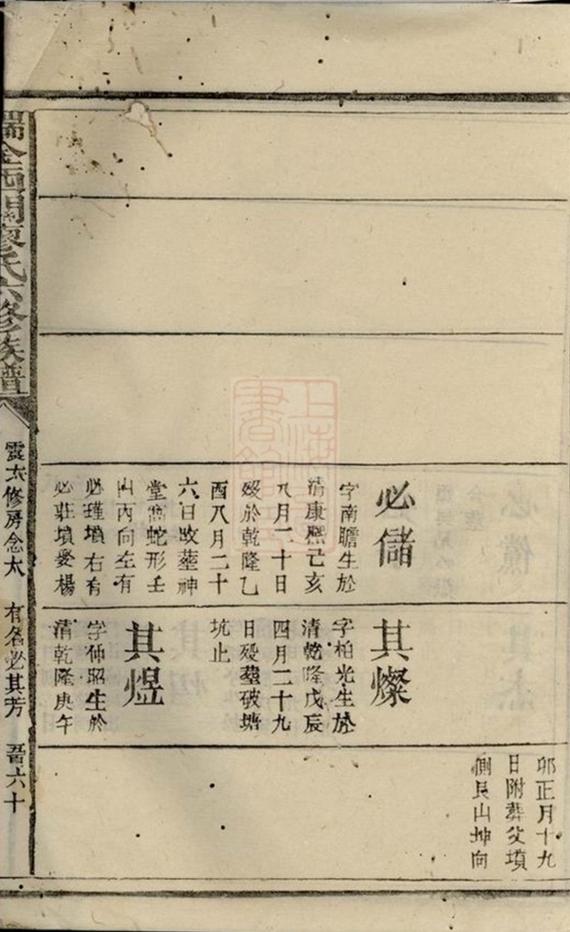 必儲
字南瞻生於
清康熙己亥
八月二十日
歿於乾隆乙
酉八月二十
六日改塟神
堂窩蛇形壬
山丙向左有
必瑾墳右有
必莊墳愛楊
其燦
字柏光生於
清乾隆戊辰
四月二十九
日歿塟破塘
坑止
其煜
字仲昭生於
清乾隆庚午
卯正月十九
日附葬父墳
側艮山坤向
瑞金西關廖氏六修族譜
雲太修房念太
有名必其芳
六十
上海圖書館藏